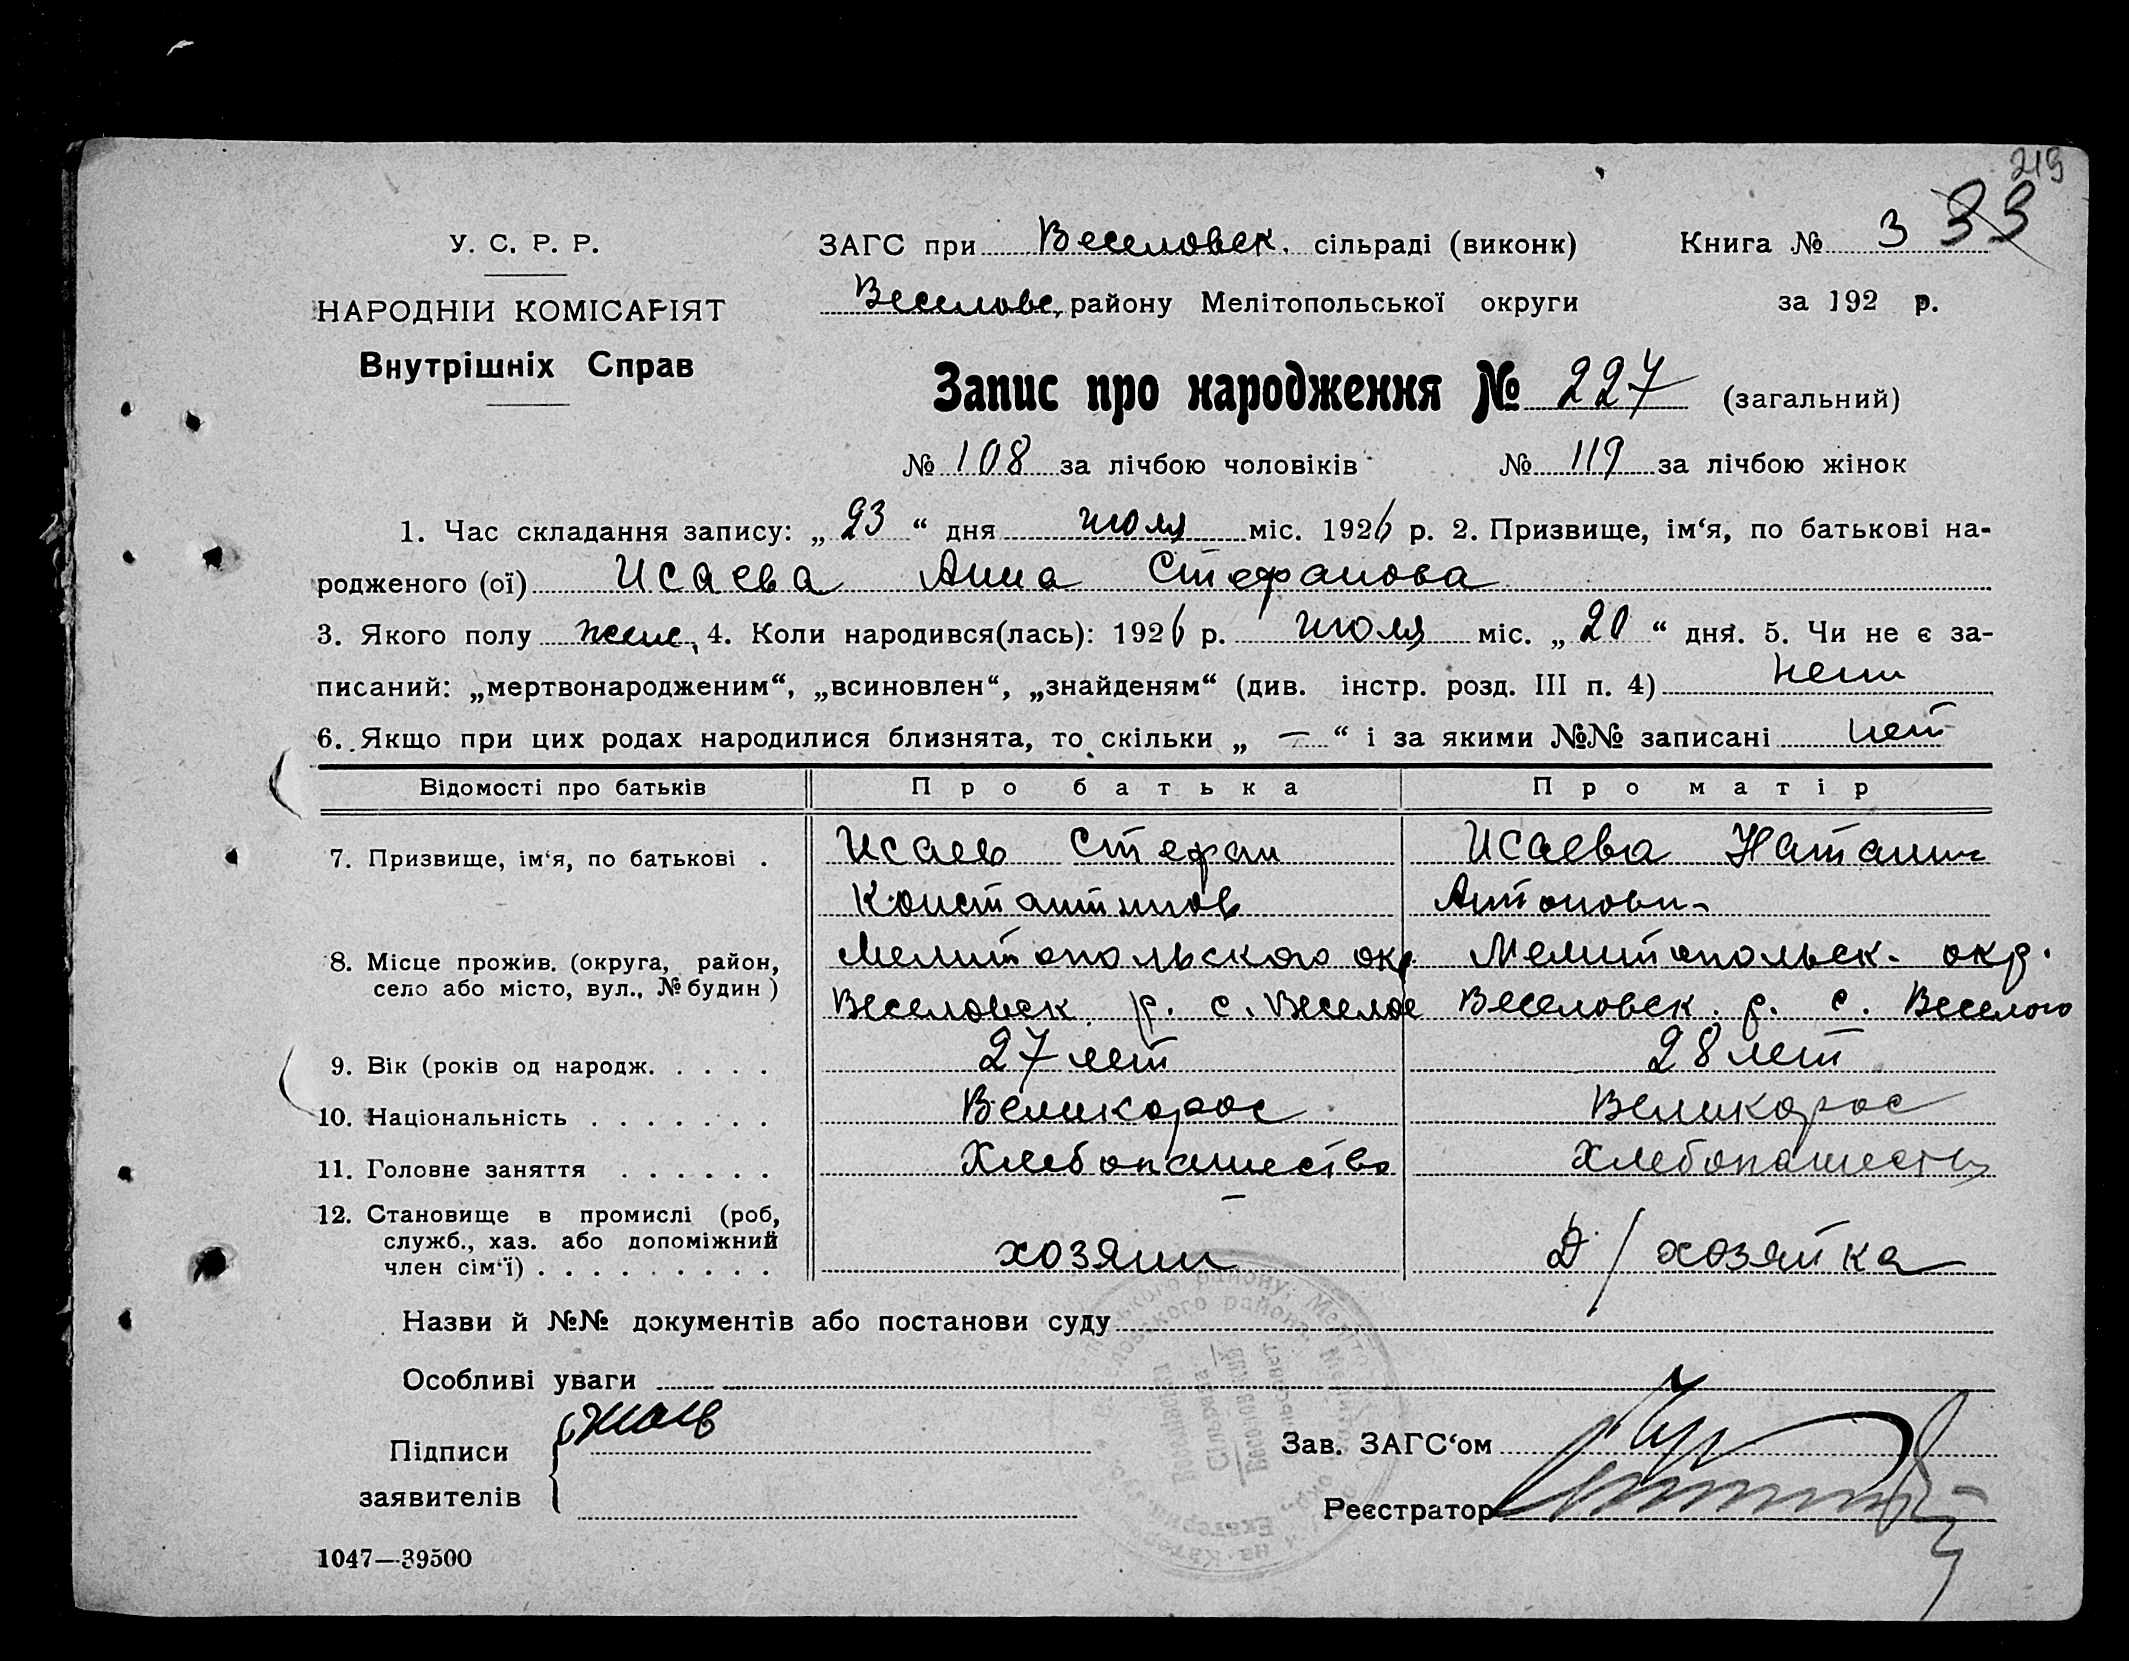 219
У. С. Р. Р.
ЗАГС при Веселовск. сільраді (виконк)
Книга № 3 33
НАРОДНІИ КОМІСАРІЯТ
Веселовс. району Мелітопольської округи
за 192 р.
Внутрішніх Справ
Запис про народження № 227 (загальний)
№ 108 за лічбою чоловіків № 119 за лічбою жінок
1. Час складання запису: „ 23 “ дня июля міс. 1926 р. 2. Призвище, ім‘я, по батькові на-
родженого (ої) Исаева Анна Стефанова
3. Якого полу женс. 4. Коли народився(лась): 1926 р. июля міс. „ 20 “ дня. 5. Чи не є за-
писаний: „мертвонародженим“, „всиновлен“, „знайденям“ (див. інстр. розд. III п. 4) нет
6. Якщо при цих родах народилися близнята, то скільки „ — “ і за якими №№ записані нет
Відомості про батьків Про батька Про матір
7. Призвище, ім‘я, по батькові . Исаев Стефан Исаева Наталия
Константинов Антоновн-
8. Місце прожив. (округа, район, Мелитопольского окр. Мелитопольск. окр.
село або місто, вул., № будин ) Веселовск. р. с. Веселое Веселовск. р. с. Веселого
9. Вік (років од народж. . . . . 27 лет 28 лет
10. Національність . . . . . . . Великорос Великорос
11. Головне заняття . . . . . . Хлебопашество Хлебопашеств
12. Становище в промислі (роб,
служб., хаз. або допоміжний
член сім‘ї) . . . . . . . . . хозяин Д/хозяйка
Назви й №№ документів або постанови суду
Особливі уваги
Підписи
заявителів
Зав. ЗАГС‘ом
Реєстратор
1047—39500